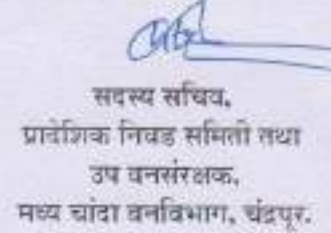 सदस्य सचिव,
प्रादेशिक निवड समिती तथा
उप वनसंरक्षक,
मध्य चांदा वनविभाग, चंद्रपूर.